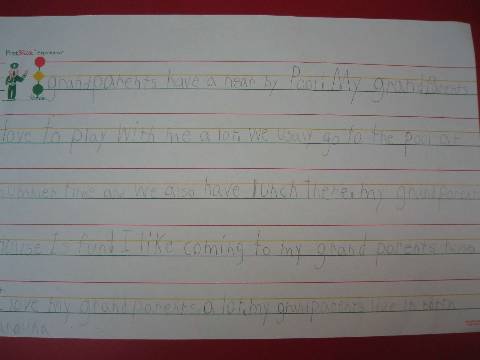 grandparents have a near by Pool. My grandparents
love to play with me a lot. We usaly go to the pool at
summer time and we also have lunch there. my grandparents
House Is fun! I like coming to my grand parents house
I love my grandparents a lot. my grandparents live in north